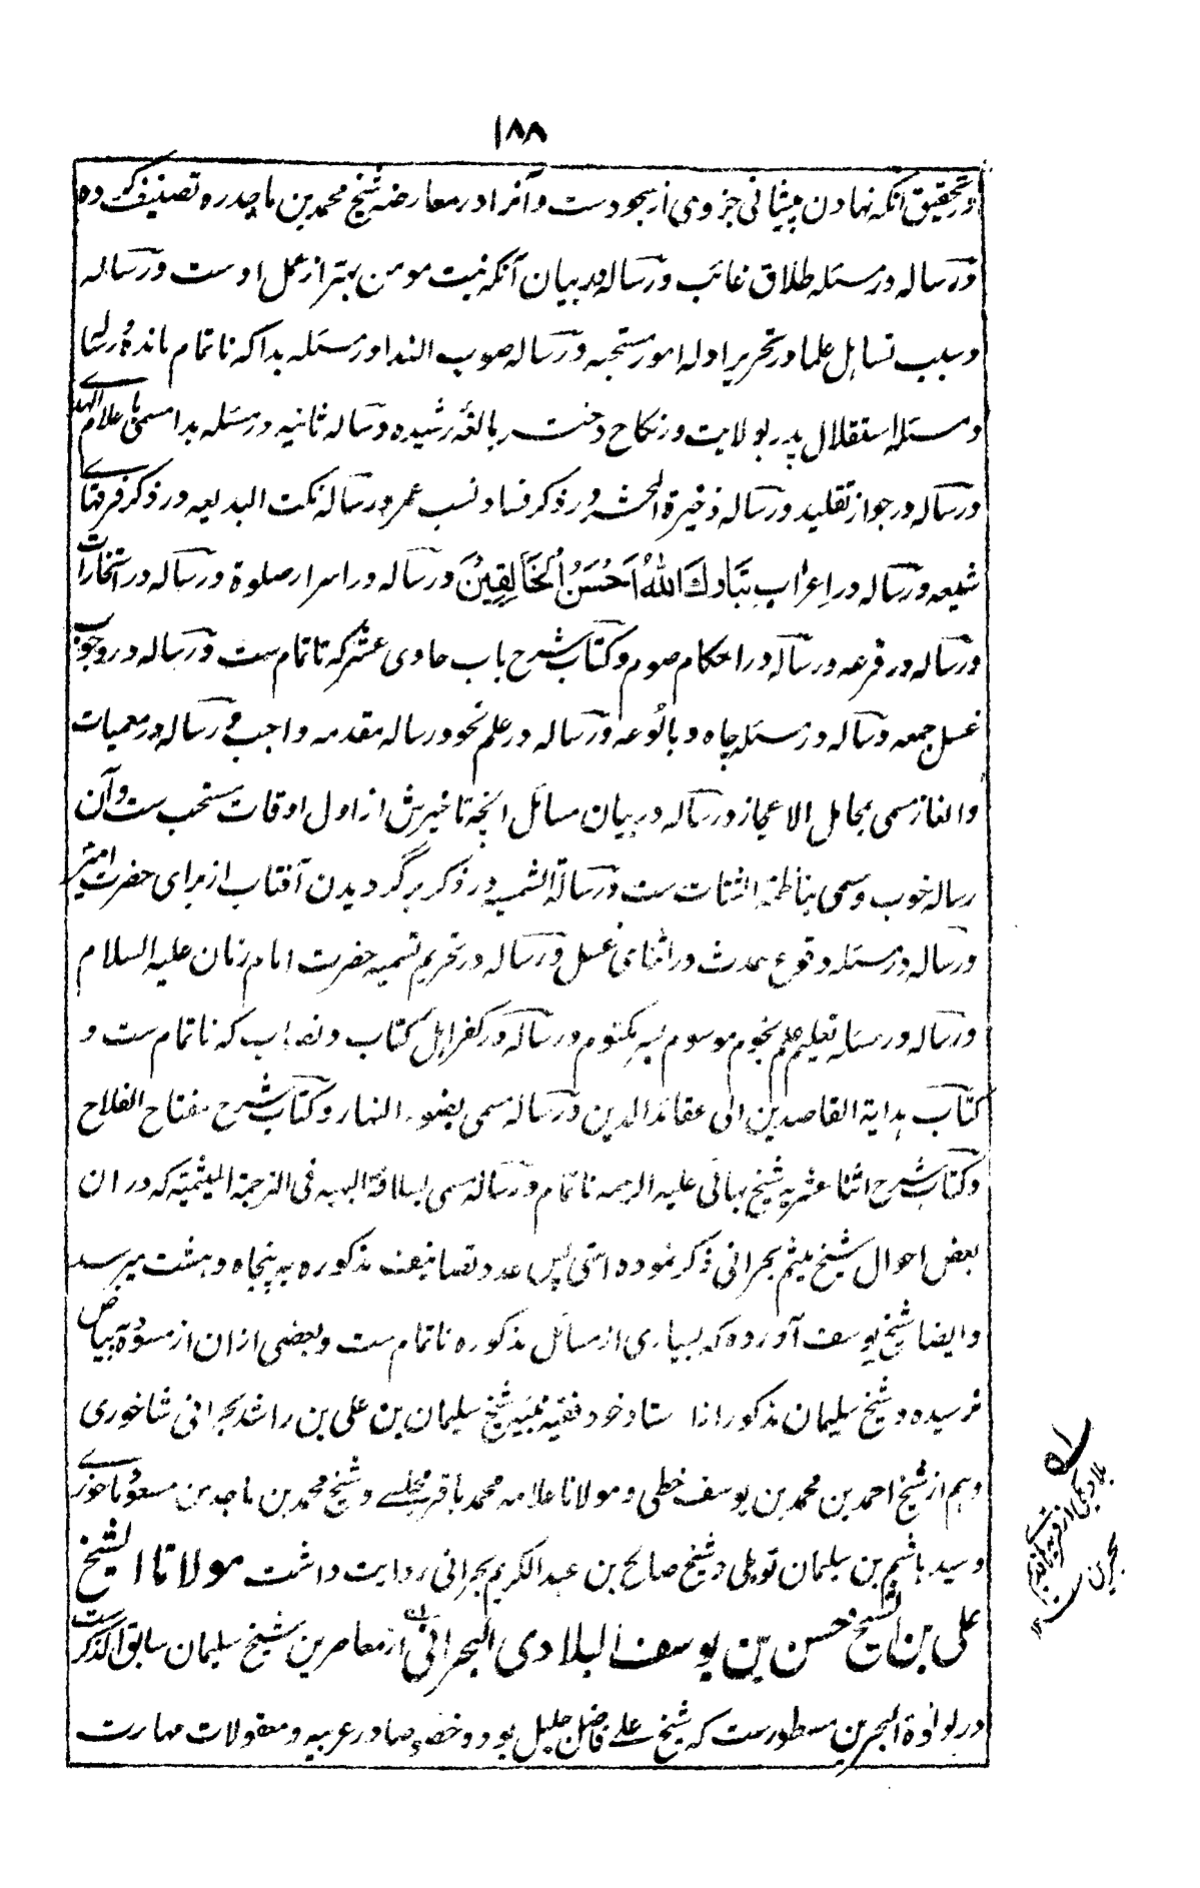 ۱۸۸
در تحقیق آنکه نهادن پیشانی جزوی از سجودست و آنرا در معارضه شیخ محمد بن ماجد ره تصنیف کرده
و رساله در مسئله طلاق غائب و رساله در بیان آنکه نیت مومن بهتر از عمل اوست و رساله
در سبب تساهل علما در تحریر ادله امور مستحبه و رساله صوب الندا در مسئله بدا که ناتمام مانده و رساله
در مسئله استقلال پدر بولایت در نکاح دختر بالغه رشیده و رساله ثانیه در مسئله بدا مسمی باعلام الهدے
و رساله در جواز تقلید و رساله ذخیرة المحشر در ذکر فساد نسب عمر و رساله نکت البدیعه در ذکر فرقهاے
شیعه و رساله در اعراب تَبَارَكَ اللهُ اَحْسَنُ الْخَالِقِينَ و رساله در اسرار صلوة و رساله در استخارات
و رساله در قرعه و رساله در احکام صوم و کتاب شرح باب حادی عشر که ناتمام ست و رساله در وجوب
غسل جمعه و رساله در مسئله چاه و بالوعه و رساله در علم نحو و رساله مقدمه واجب و رساله در معمیات
و الغاز مسمی بحامل الاعجاز و رساله در بیان مسائل آنچه تاخیرش از اول اوقات مستحب ست و آن
رساله خوب و مسمی بناظمة الشتات ست و رسالة الشمسیه در ذکر برگردیدن آفتاب از برای حضرت امیر
و رساله در مسئله وقوع حدث در اثنای غسل و رساله در تحریم تسمیه حضرت امام زمان علیه السلام
و رساله در مسئله تعلیم علم نجوم موسوم بسر مکتوم و رساله در کفر اهل کتاب و نصاب که ناتمام ست و
کتاب هدایة القاصدین الی عقائد الدین و رساله مسمی بضوء النهار و کتاب شرح مفتاح الفلاح
و کتاب شرح اثنا عشریه شیخ بهائی علیه الرحمه ناتمام و رساله مسمی بسلافة البهیه فی الترجمة المیثمیة که در ان
بعض احوال شیخ میثم بحرانی ذکر نموده انتهی پس عدد تصانیف مذکوره به پنجاه و هشت میرسد
و ایضا شیخ یوسف آورده که بسیاری از مسائل مذکوره ناتمام ست و بعضی از ان از مسوده به بیاض
نرسیده و شیخ سلیمان مذکور از استاد خود فقیه نبیه شیخ سلیمان بن علی بن راشد بحرانی شاخوری
و هم از شیخ احمد بن محمد بن یوسف خطی و مولانا علامه محمد باقر مجلسے و شیخ محمد بن ماجد بن مسعود ماحوزے
و سید هاشم بن سلیمان توبلی و شیخ صالح بن عبد الکریم بحرانی روایت داشت مولانا الشیخ
علی بن الشیخ حسن بن یوسف البلادی البحرانی از معاصرین شیخ سلیمان سابق الذکرست
در لولوة البحرین مسطورست که شیخ علے فاضل جلیل بود و خصوصا در عربیه و معقولات مهارت
بلاد یکی از
بحرین ست